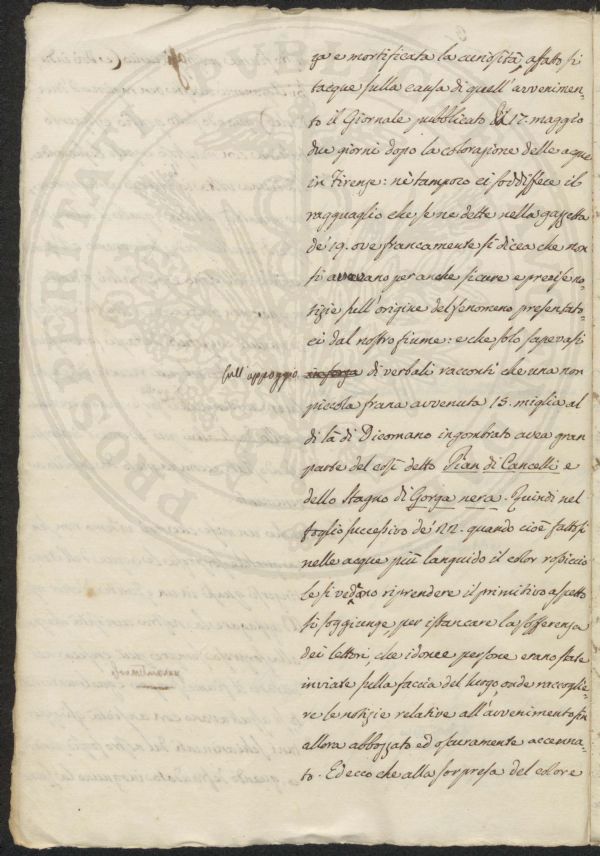 za e mortificata la curiosità, affatto si
tacque sulla causa di quell'avvenimen-
to il Giornale pubblicato 17. maggio
due giorni dopo la colorazione delle acque
in Firenze: nè tampoco ci soddisfece il
ragguaglio che se ne dette nella gazzetta
de' 19. ove francamente si dicea che non
si avevano per anche sicure e precise no-
tizie sull'origine del fenomeno presentato-
ci dal nostro fiume: e che solo sapevasi
sull'appoggio di verbali racconti che una non
piccola frana avvenuta 15. miglia al
di là di Dicomano ingombrato avea gran
parte del così detto Pian di Cancelli e
dello Stagno di Gorga nera. Quindi nel
foglio successivo de' 22. quando cioè fattosi
nelle acque più languido il color rossiccio
le si vedeano riprendere il primitivo aspetto
si soggiunge, per istancare la sofferenza
dei lettori, che idonee persone erano state
inviate sulla faccia del luogo, onde raccoglie-
re le notizie relative all'avvenimento fin
allora abbozzato ed oscuramente accenna-
to. Ed ecco che alla sorpresa del colore
PROSPERITATI PUBLICAE